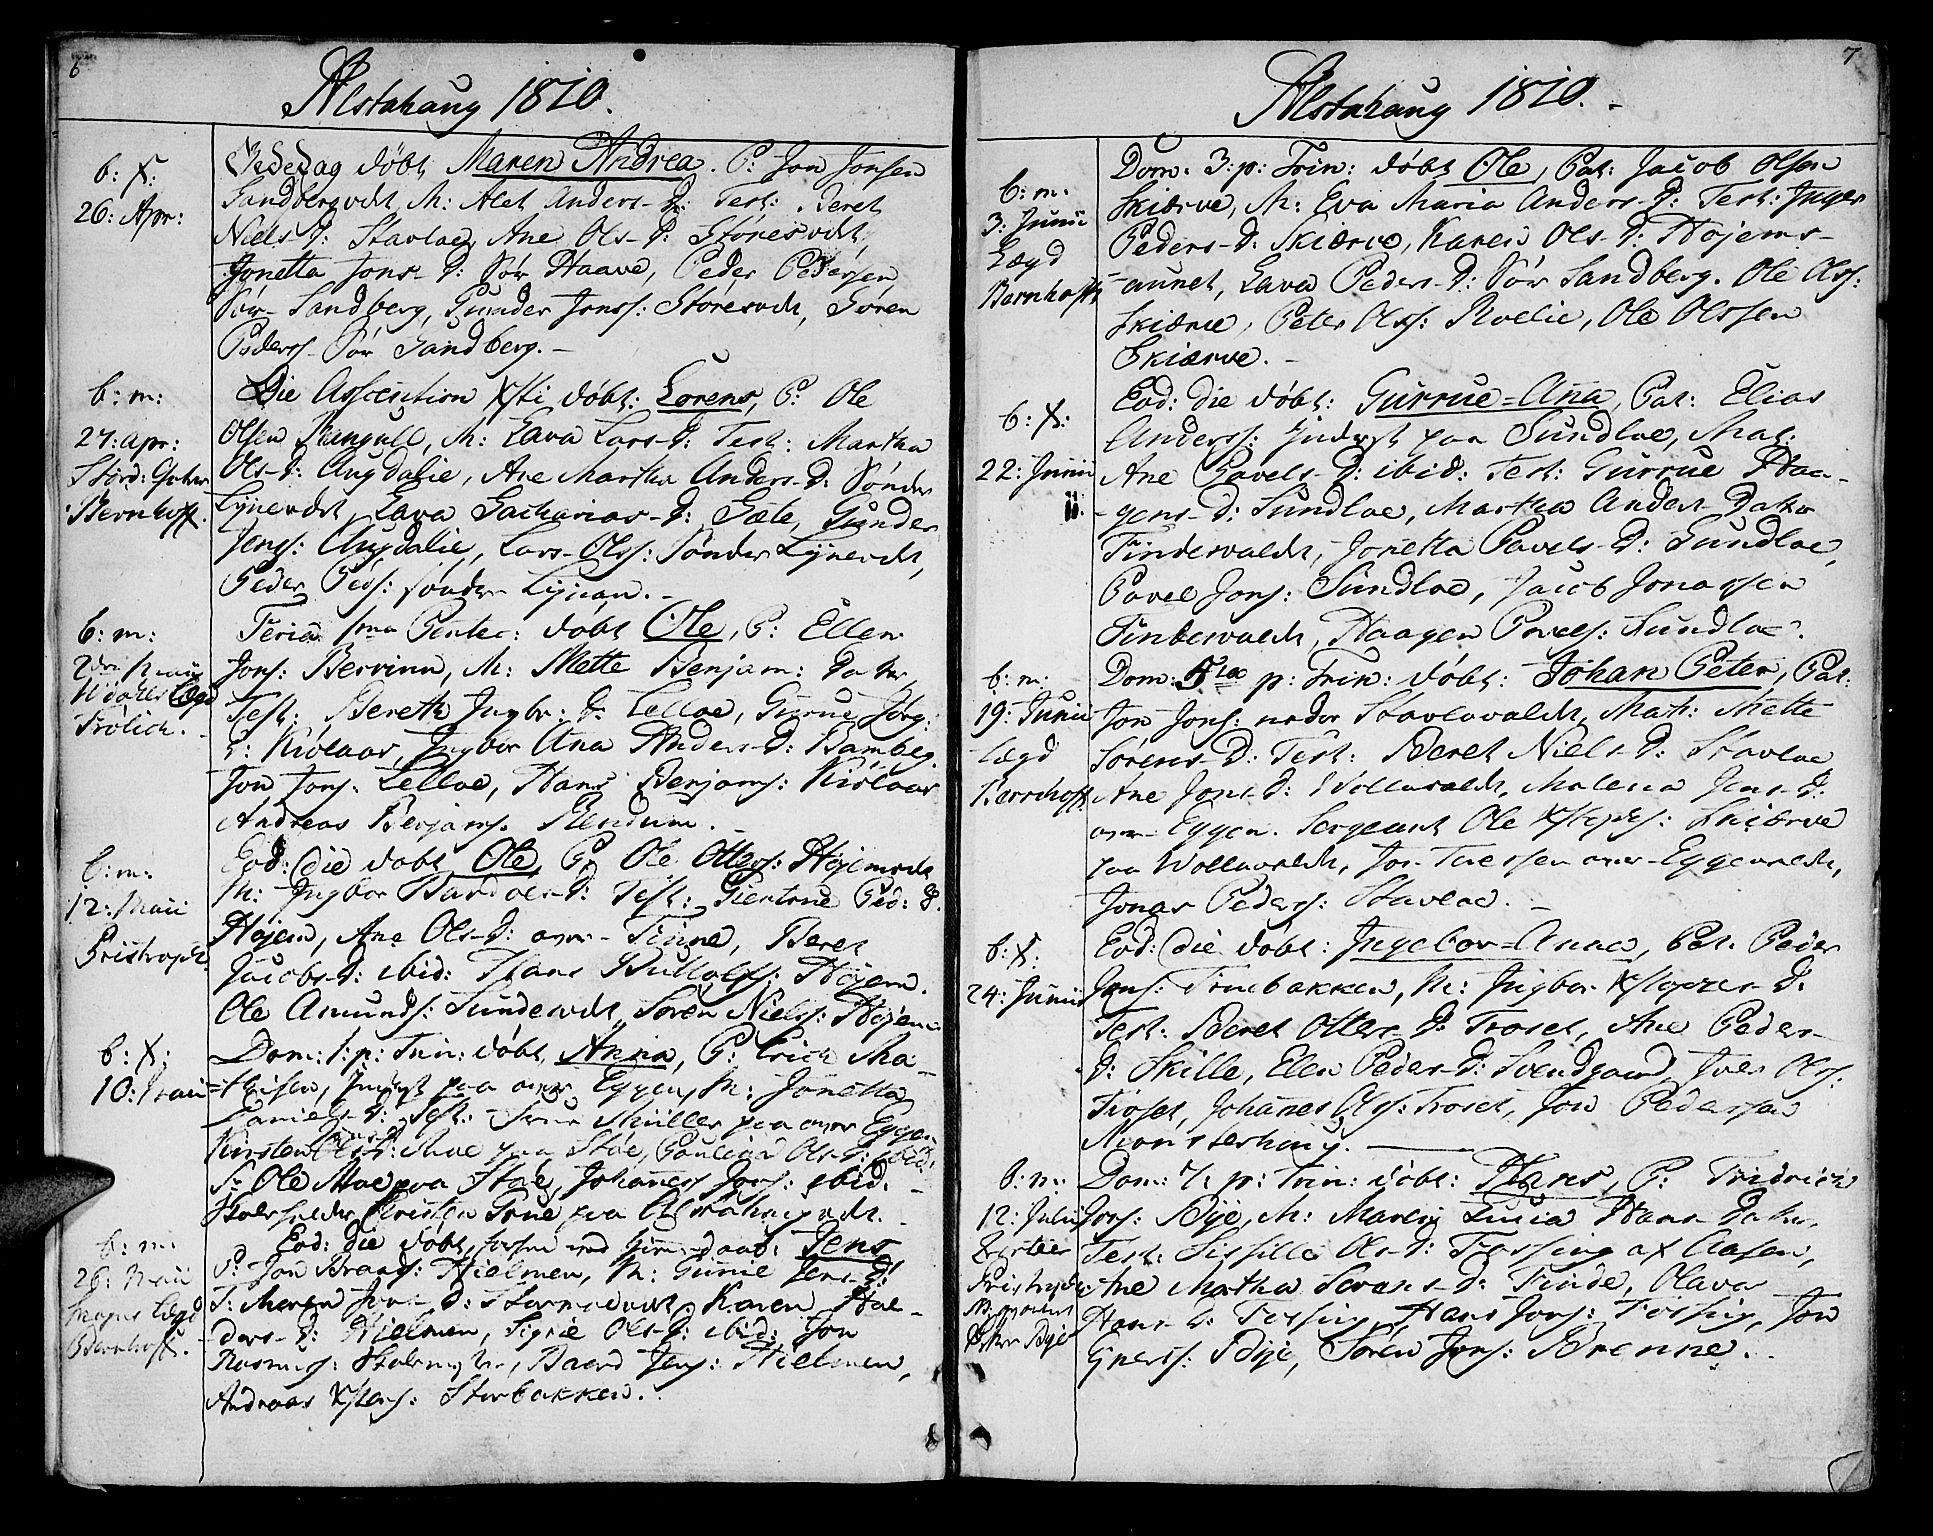 6
Alstahaug 1810.
b: X:
26: Apr:
Bededag døbt Maren Andrea. P: Jon Jonsen
Sandbergvdt, M: Alet Anders-D: Test: Beret
Niels D: Stavloe, Ane Ols-D: Storesvdt,
Jonetta Jons-D: Sør Haave, Peder Pedersen
Sør-Sandberg, Gunder Jonss: Storesvdt, Søren
Pederss. Sør Sandberg.
b: m:
27: Apr:
Bernhoft.
Die Ascention Xsti døbt: Lorens, P: Ole
Olsen Rangull, M: Lava Lars-D: Test: Martha
Ols-D: Augdalie, Ane Martha Anders-D: Sønder
Lynevdt, Lava Sacharias-D: Gale, Gunder
Jens: Augdalie, Lars Olss: Sønder Lynevdt,
Peder Peds: sønder Lynum.
b: m:
Frølich.
Feria 1ma Pentec: døbt Ole, P: Ellen
Jons: Bervinn, M: Mette Benjam: Datter,
Test: Bereth Ingbr: D: Lelloe, Gurue Jørg:
D: Kiølaas, Ingbor Ana Anders-D: Bamberg
Jon Jons: Lelloe, Hans Benjams: Kiølaas
Andreas Benjams. Rendum.
b: m:
12: Maii
Eod: die døbt Ole, P: Ole Otters: Højemsvdt
M: Ingbor Bardoes-D: Test: Giertrue Ped: D.
Højem, Ane Ols-D: over-Tinne, Beret
Jacobs-D: ibid: Hans Rullofs: Højem.
Ole Amunds: Sundesvdt, Søren Nielss: Højem
b: X:
10: Maii
Dom: 1: p: Trin: døbt Anna, P: Erich Ma-
thisen, Inderst paa over Eggen, M: Jonetta
Daniels-D: Test: Müller paa over Eggen
Kirsten Moe paa Støe, Paulina Ols-D: ibid:
Sr Ole Moe paa Støe, Johannes Jons: ibid.
Christen True paa Alstahaugvdt.
b: m:
26: Maii
Magnus Lægd
Bernhoft.
Eod: die døbt, Jens
P: Jon Braads: Hielmen, M: Gunie Jens D:
T: Maren Jons-D: Karen Hal-
dors-D: Hielmen, Sigrie Ols-D: ibid: Jon
Rasmuss: Baard Jens: Hielmen,
Andreas Xstens: Storbakken.
7
Alstahaug 1810.
b: m:
3: Junii
Lægd
Bernhoft
Dom: 3: p: Trin: døbt Ole, Pat: Jacob Olsen
Skiærve, M: Eva Maria Anders-D: Test: Inger
Peders-D: Skiærve, Karen Ols-D: Højems-
aunet, Lava Peders-D: Sør Sandberg. Ole Olss:
Skiærve, Peter Olss: Roelie, Ole Olssen
Skiærve.
b: X:
22: Junii
Eod: die døbt: Gurrue-Ana, Pat: Elias
Anderss: Inderst paa Sundloe, Mat:
Ane Pavels-D: ibid: Test: Gurrue Haa-
gens-D: Sundloe, Martha Anders Datter
Tindesvaldt, Jonetta Pavels-D: Sundloe,
Pavel Jons: Sundloe, Jacob Jonassen
Tindesvaldt, Haagen Pavels: Sundloe.
b: m:
19: Junii
Lægd
Bernhoft
Dom: 5ta p: Trin: døbt: Johan Peter, Pat:
Jon Jons: neder Stavlovaldt, Mat: Mette
Sørens-D: Test: Beret Niels-D: Stavloe
Ane Jons-D: Wollavaldt, Malena Jens-D:
over-Eggen. Sergeant Ole Xstophs: Skiærve
paa Wollavaldt, Jon Tuessen over-Eggevaldt,
Jonas Peders: Stavloe.
b: X:
24: Junii
Eod: die døbt: Ingebor-Anna, Pat. Peder
Jons: Truebakken, M: Ingbor Xstophers-D:
Test: Beret Otters-D: Troset, Ane Peders-
D: Skille, Elen Peders-D: Svendgaard, Iver Olss:
Troset, Johanes Olss: Troset, Jon Pedersen
Monsterhaug.
b: m:
12: Julii
Peter Bye
Dom: 7: p: Trin: døbt: Hans, P: Fridrich
Jons: Bye, M: Maren Lucia Hans Datter,
Test: Sissille Ols-D: Fossing af Aasen,
Ane Martha Sevans-D: Tinde, Olava
Hans-D: Fossing, Hans Jons: Fossing, Jon
Gnerss: Bye, Søren Jons: Brenne.